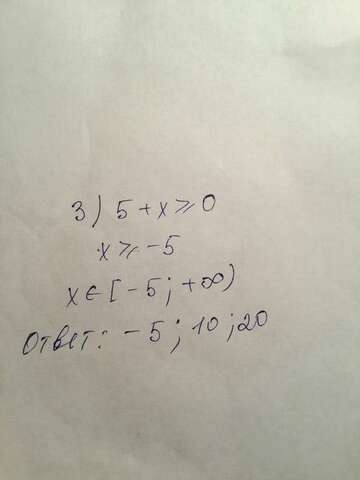 3) 5+x⩾0
x⩾-5
x∈[-5;+∞)
Ответ: -5; 10; 20